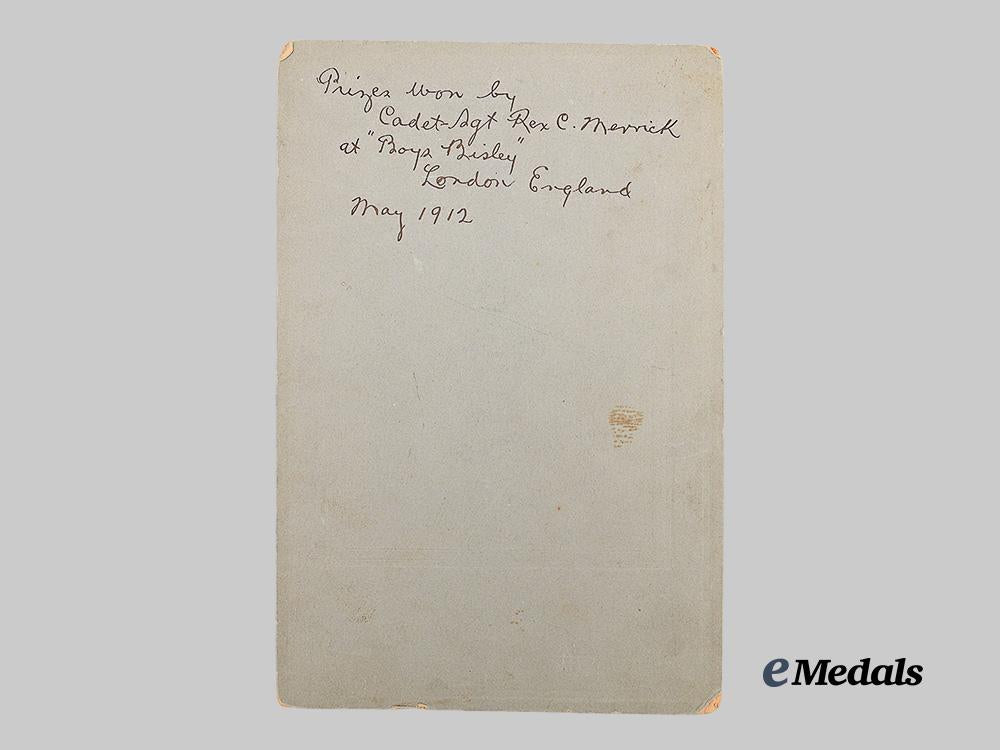 Prizes won by
Cadet-Sgt Rex C. Merrick
at "Boys Bisley"
London England
May 1912
eMedals